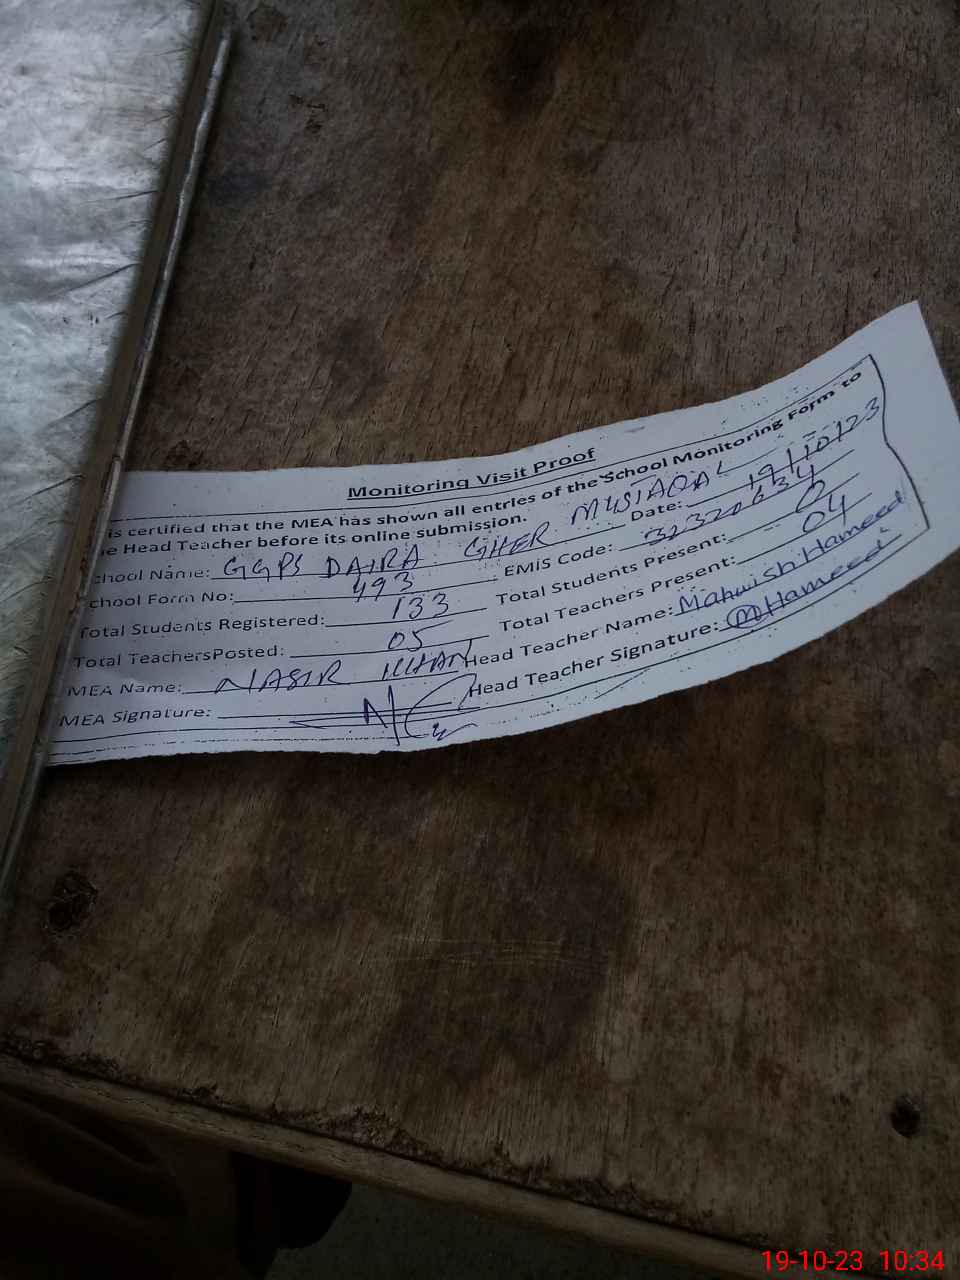 Monitoring Visit Proof
is certified that the MEA has shown all entries of the School Monitoring Form to
e Head Teacher before its online submission.
chool Name: GGPS DAIRA GHER MUSTAQAL Date: 19/10/23
chool Form No: 493 EMIS Code: 32320634
Total Students Registered: 133 Total Students Present:
Total TeachersPosted: 05 Total Teachers Present: 04
MEA Name: NASIR KHAN Head Teacher Name: Mahwish Hameed
MEA Signature: Head Teacher Signature: M Hameed
19-10-23 10:34